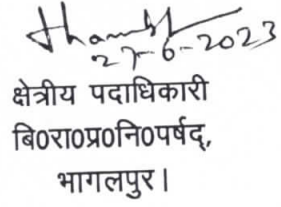 27-6-2023
क्षेत्रीय पदाधिकारी
बि0रा0प्र0नि0पर्षद्,
भागलपुर।